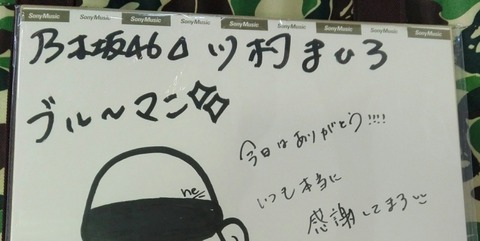 SonyMusic SonyMusic SonyMusic SonyMusic SonyMusic SonyMusic SonyMusic
乃木坂46△川村まひろ
ブル〜マン
今日はありがとう!!!!
いつも本当に
感謝してまろ
ne